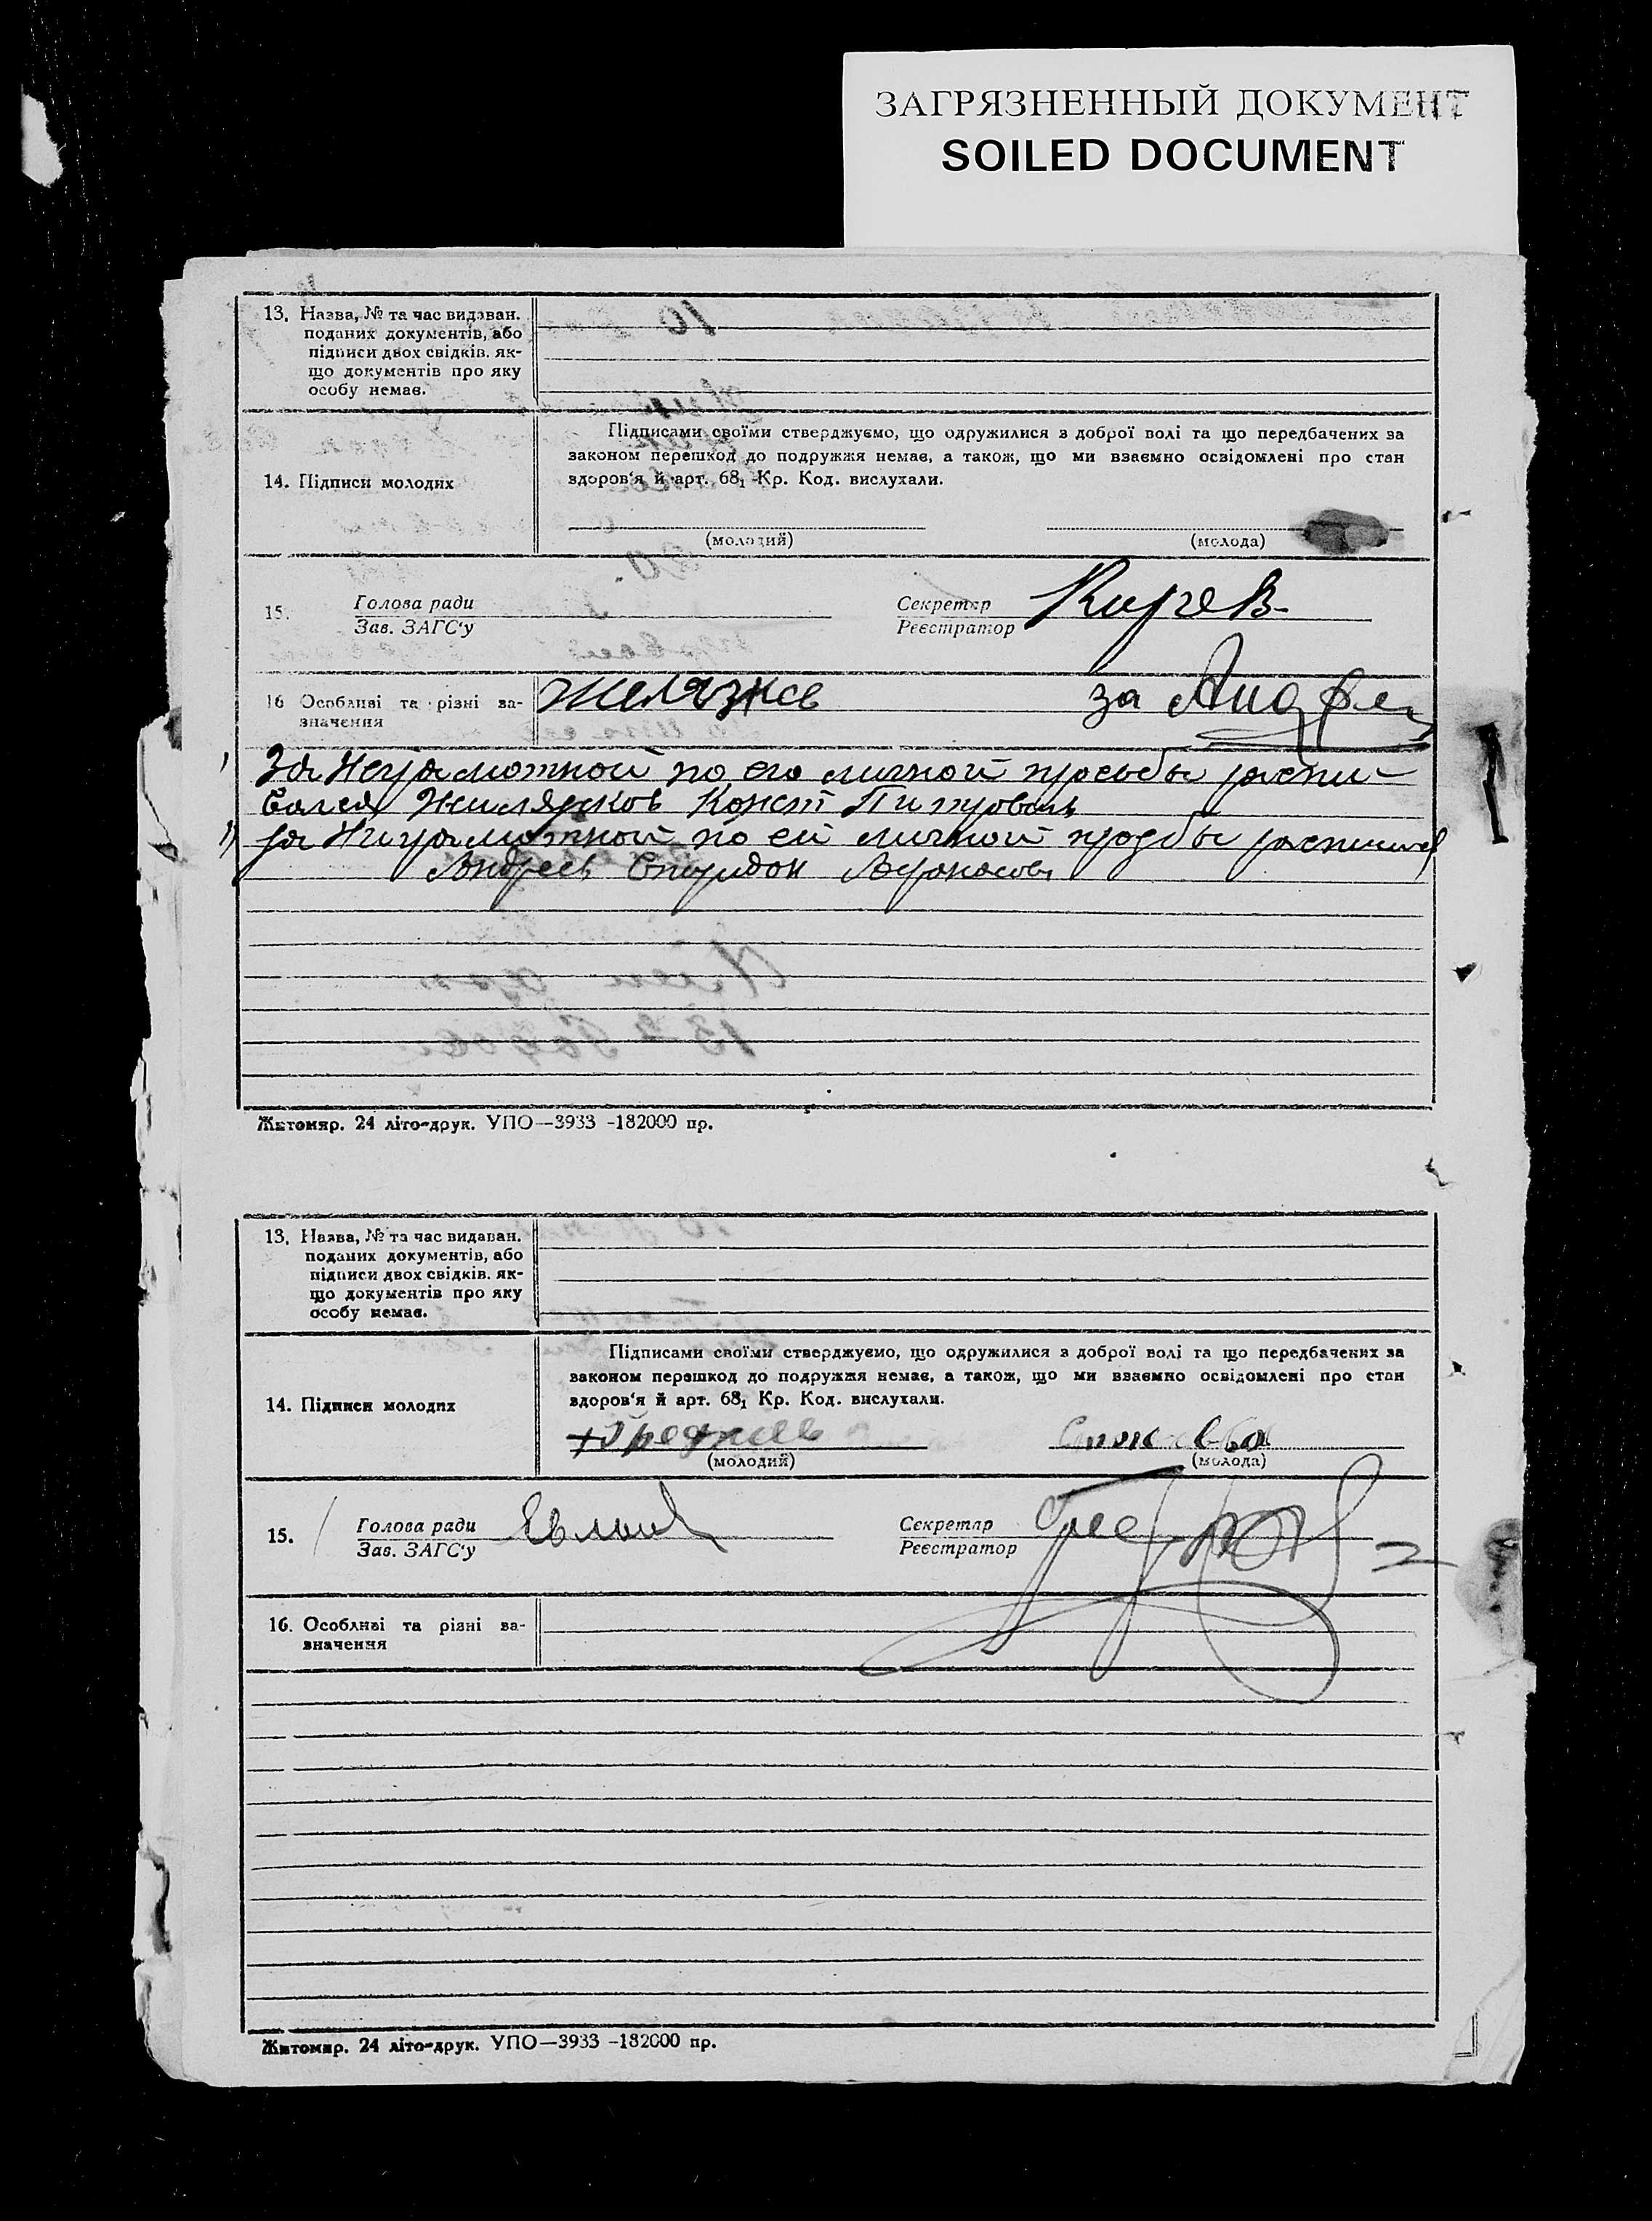 ЗАГРЯЗНЕННЫЙ ДОКУМЕНТ
SOILED DOCUMENT
13. Назва, № та час видаван.
поданих документів, або
підписи двох свідків. як-
що документів про яку
особу немає.
14. Підписи молодих
Підписами своїми стверджуємо, що одружилися з доброї волі та що передбачених за
законом перешкод до подружжя немає, а також, що ми взаємно освідомлені про стан
здоров'я й арт. 68₁ Кр. Код. вислухали.
(молодий) (молода)
15. Голова ради
Зав. ЗАГС'у
Секретар
Реєстратор
16 Особливі та різні за-
значення
за
За Неграмотной по его личной просьбе распи-
вался Конст
за Ниграмотной по ей личной
Андреев Спиридон
Житомир. 24 літо-друк. УПО—3933 -182000 пр.
13. Назва, № та час видаван.
поданих документів, або
підписи двох свідків. як-
що документів про яку
особу немає.
14. Підписи молодих
Підписами своїми стверджуємо, що одружилися з доброї волі та що передбачених за
законом перешкод до подружжя немає, а також, що ми взаємно освідомлені про стан
здоров'я й арт. 68₁ Кр. Код. вислухали.
(молодий) (молода)
15. Голова ради
Зав. ЗАГС'у
Секретар
Реєстратор
16. Особливі та різні за-
значення
Житомир. 24 літо-друк. УПО—3933 -182000 пр.